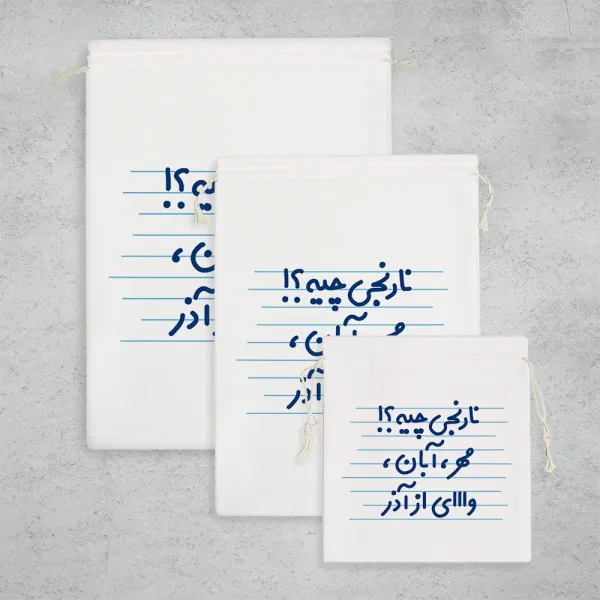 چیه؟!
ن،
آذر
نارنجی چیه؟!
مهر، آبان،
آذر
نارنجی چیه؟!
مهر، آبان،
واااای از آذر